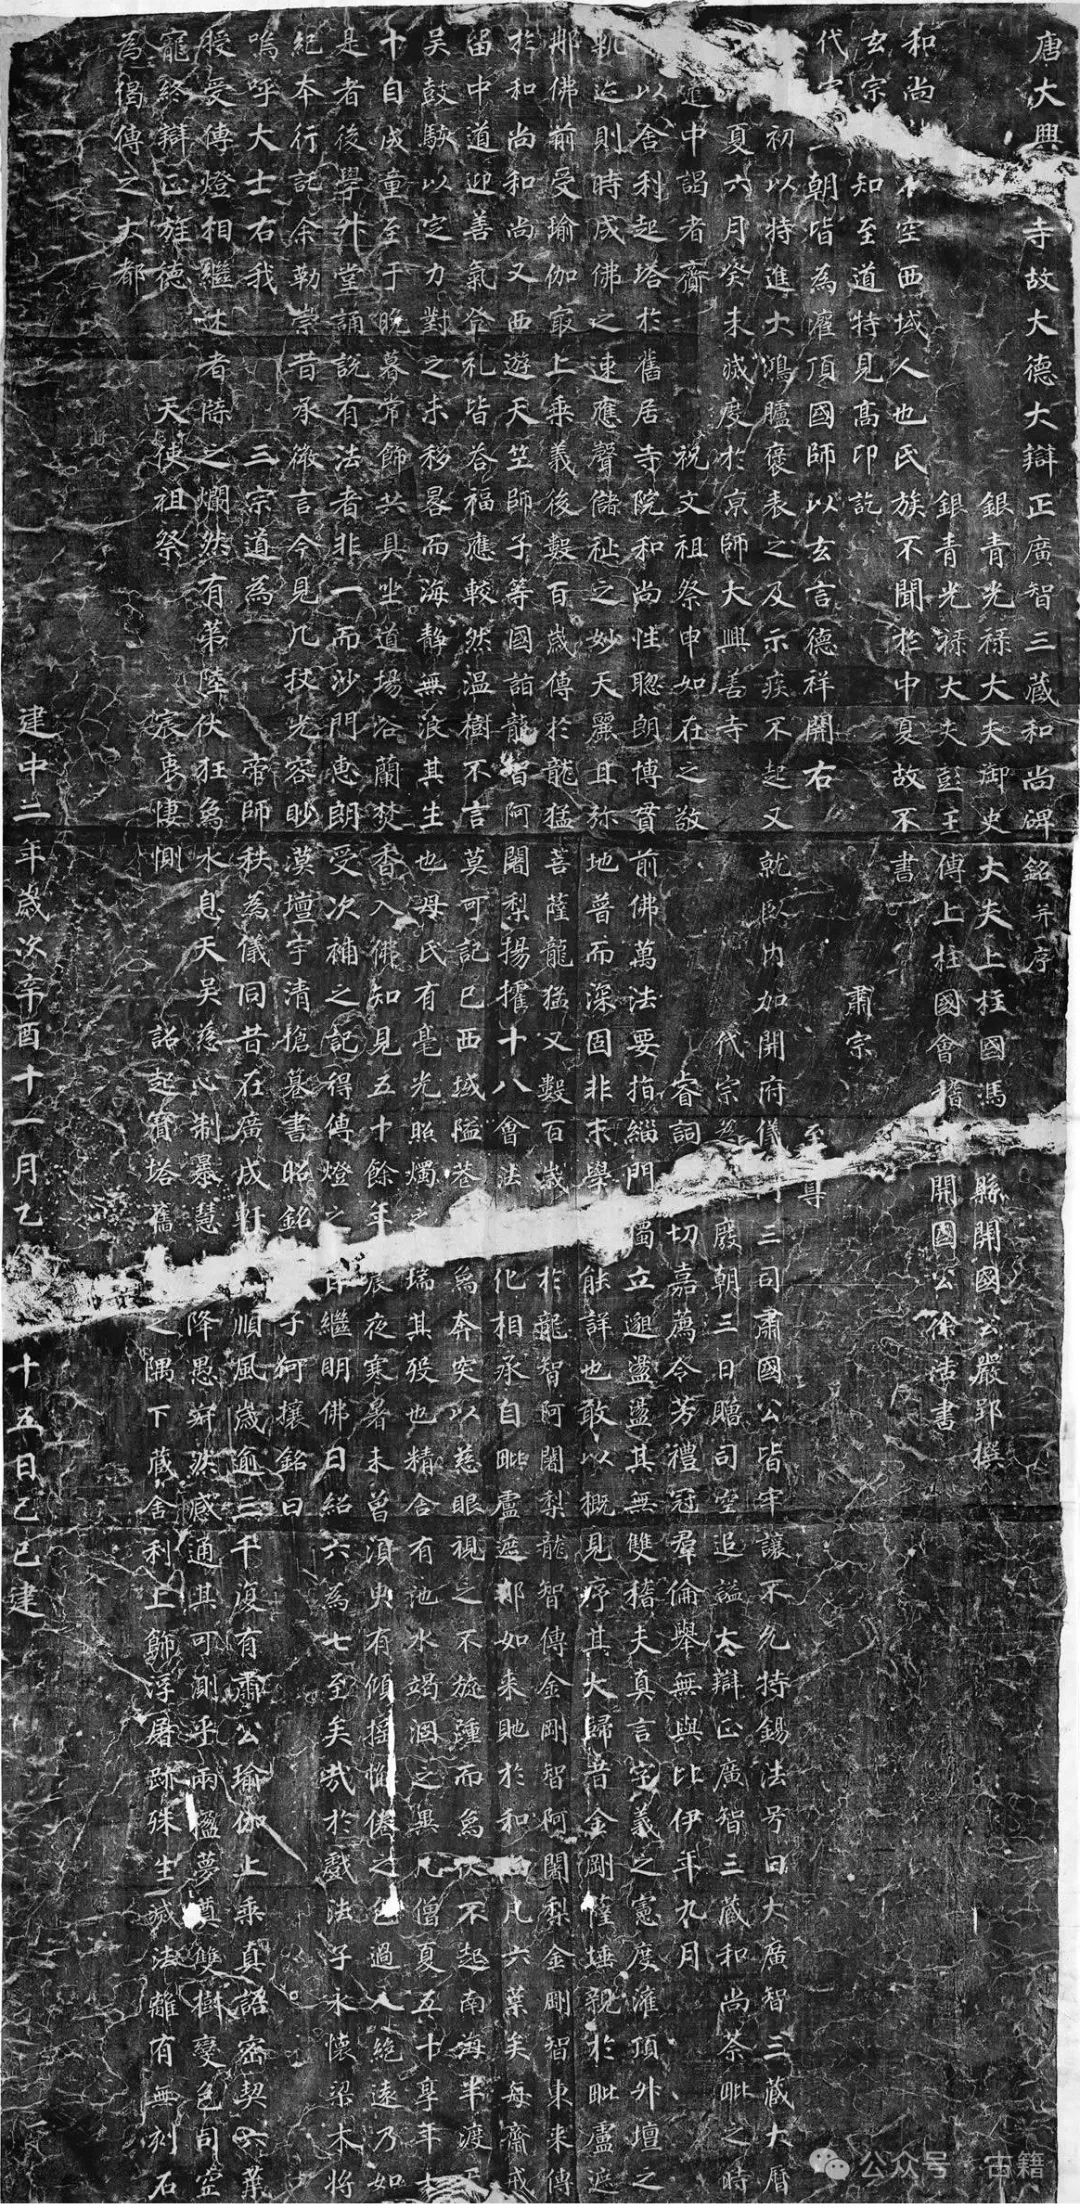 唐大興寺故大德大辯正廣智三藏和尚碑銘并序
銀青光祿大夫御史大夫上柱國馮縣開國公嚴郢撰
銀青光祿大夫彭王傅上柱國會稽開國公徐浩書
和尚不空西域人也氏族不聞於中夏故不書
玄宗知至道特見高仰訖肅宗
代宗朝皆為灌頂國師以玄言德祥開右至尊
初以特進大鴻臚褒表之及示疾不起又就臥內加開府儀三司肅國公皆牢讓不允特錫法号曰大廣智三藏大曆
夏六月癸未滅度於京師大興善寺代宗為廢朝三日贈司空追謚大辯正廣智三藏和尚荼毗之時
遣中謁者齎祝文祖祭申如在之敬睿詞切嘉薦令芳禮冠羣倫舉無與比伊年九月
以舍利起塔於舊居寺院和尚性聰朗博貫前佛萬法要指緇門獨立邈盪盪其無雙稽夫真言字義之憲度灌頂升壇之
軌迹則時成佛之速應聲儲祉之妙天麗且弥地普而深固非末學能詳也敢以概見序其大歸昔金剛薩埵親於毗盧遮
那佛前受瑜伽最上乘義後數百歲傳於龍猛菩薩龍猛又數百歲於龍智阿闍梨龍智傳金剛智阿闍梨金剛智東來傳
於和尚和尚又西遊天竺師子等國詣龍智阿闍梨揚攉十八會法化相承自毗盧遮那如來貤於和尚凡六葉矣每齋戒
留中道迎善氣登礼皆荅福應較然温樹不言莫可記已西域隘巷為奔突以慈眼視之不旋踵而為伏不起南海半渡天
吳鼓駭以定力對之未移晷而海静無浪其生也母氏有毫光照燭之瑞其殁也精舍有池水竭涸之異凡僧夏五十享年七
十自成童至于晚暮常飾共具坐道場浴蘭焚香入佛知見五十餘年晨夜寒暑未曾須臾有傾搖懈倦之色過人絶遠乃如
是者後學升堂誦說有法者非一而沙門惠朗受次補之記得傳燈之旨繼明佛日紹六為七至矣哉於戲法子永懷梁木將
紀本行託余勒崇昔承微言今見几杖光容眇漠壇宇清愴篹書昭銘子何攘銘曰
嗚呼大士右我三宗道為帝師秩為儀同昔在廣成軒順風歲逾三千復有肅公瑜伽上乘真詔密契六葉
授受傳燈相繼述者牒之爛然有第陸伏狂象水息天吳慈心制暴慧降愚寂然感通其可測乎兩楹夢奠雙樹變色司空
寵終辯正旌德天使祖祭宸衷悽惻詔起寶塔舊之隅下藏舍利上飾浮屠跡殊生滅法離有無刻石
為偈傳之大都
建中二年歲次辛酉十一月乙十五日己巳建
公众号 古籍